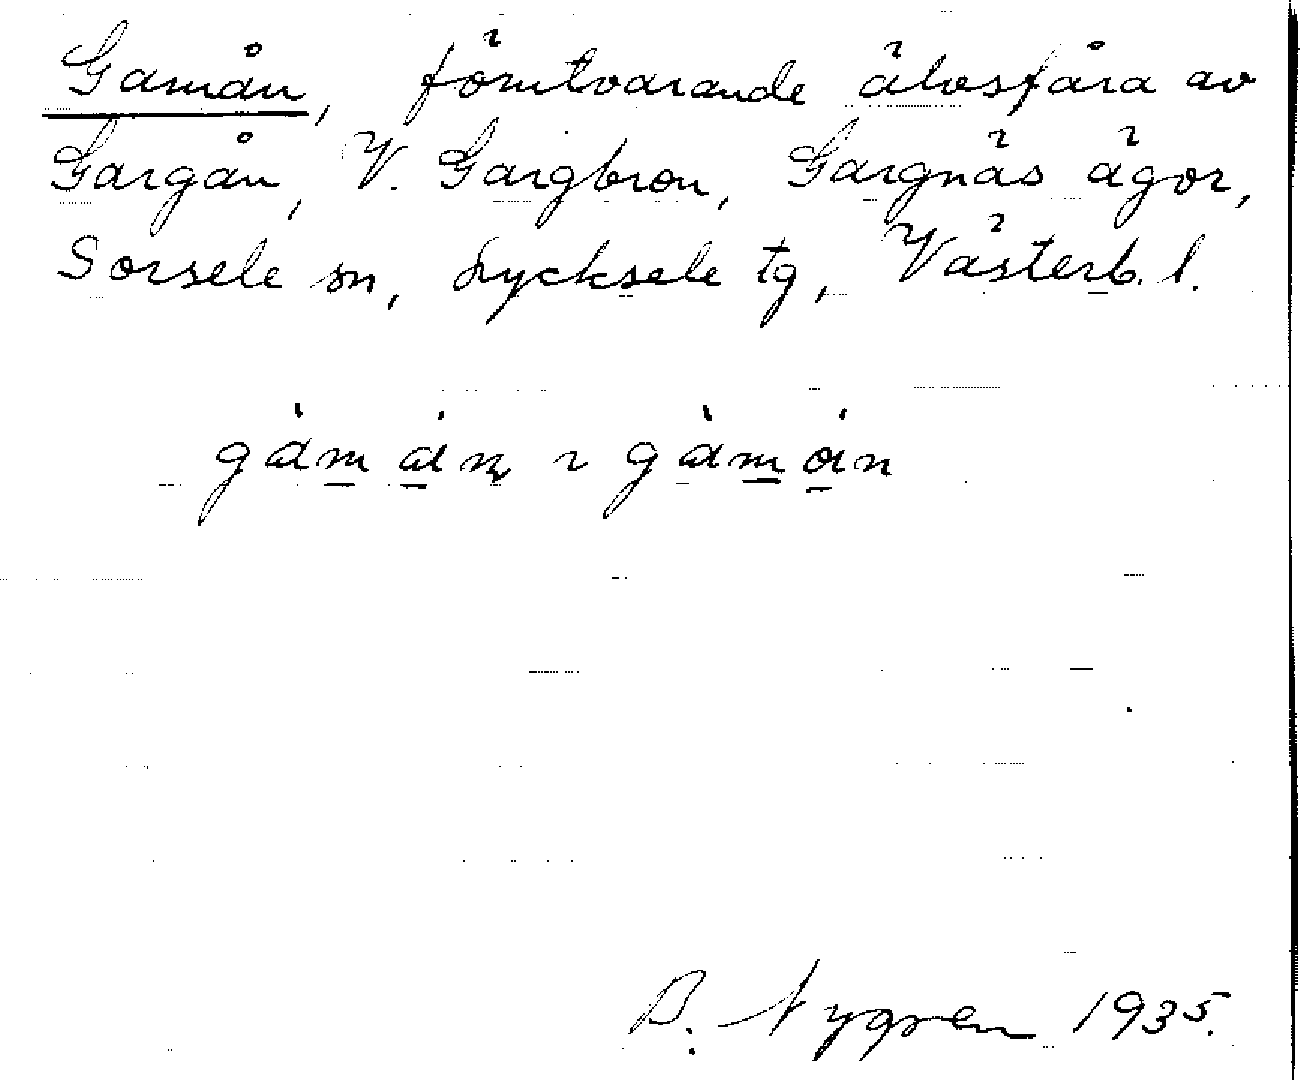 Gamån, förutvarande älvsfåra av
Gargån, V. Gargbron, Gargnäs ägor,
Sorsele sn, Lycksele tg, Västerb. l.
B. Nygren 1935.